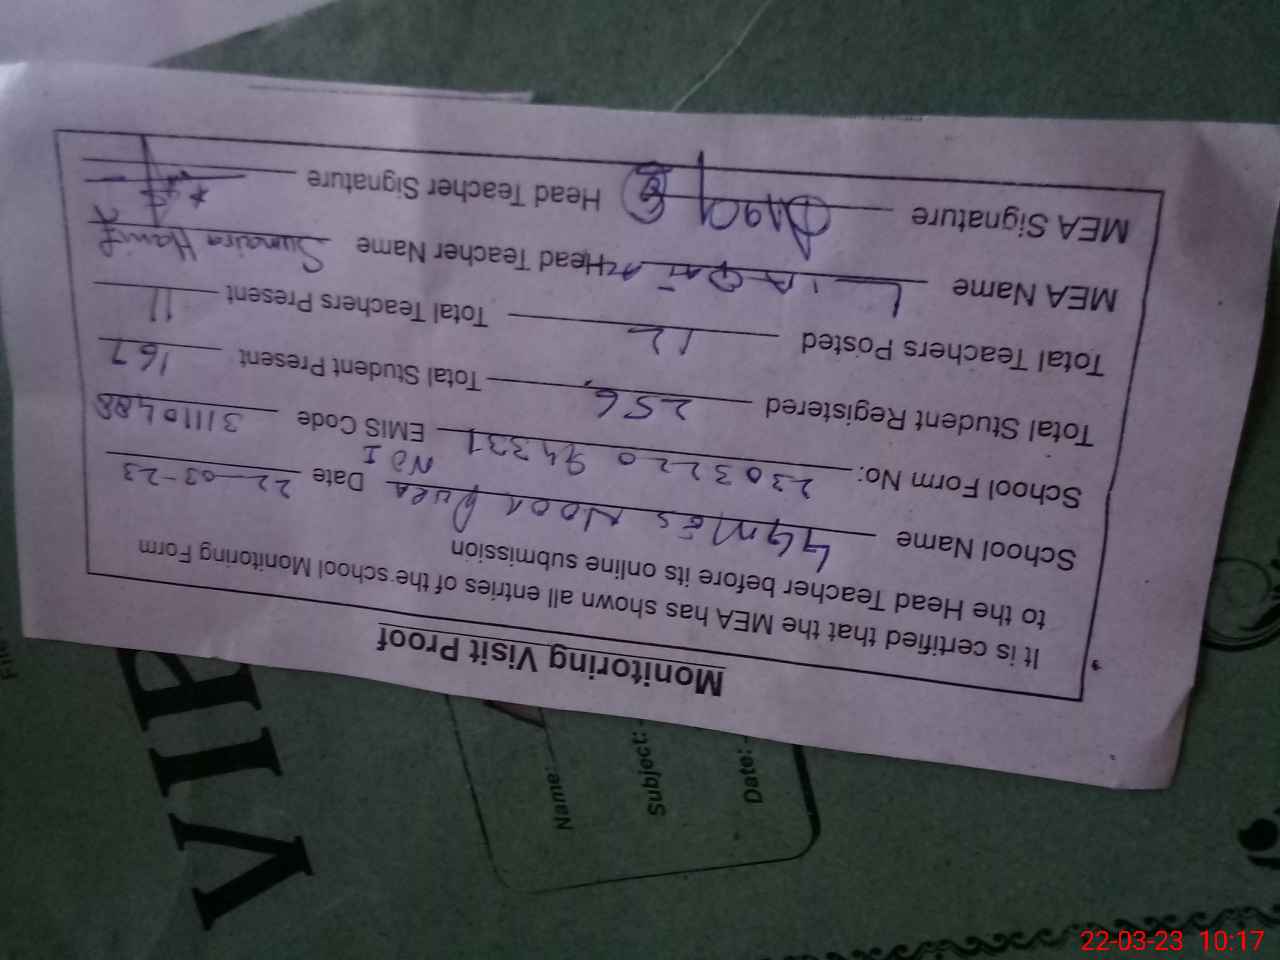 Monitoring Visit Proof
It is certified that the MEA has shown all entries of the school Monitoring Form
to the Head Teacher before its online submission
School Name GGMES Noor Pura No I Date 22-03-23
School Form No: 230322094331 EMIS Code 31110488
Total Student Registered 256 Total Student Present 167
Total Teachers Posted 12 Total Teachers Present 11
MEA Name Head Teacher Name Sumaira Hanif
MEA Signature Head Teacher Signature
VIP
Name:
Subject:
Date:
22-03-23 10:17